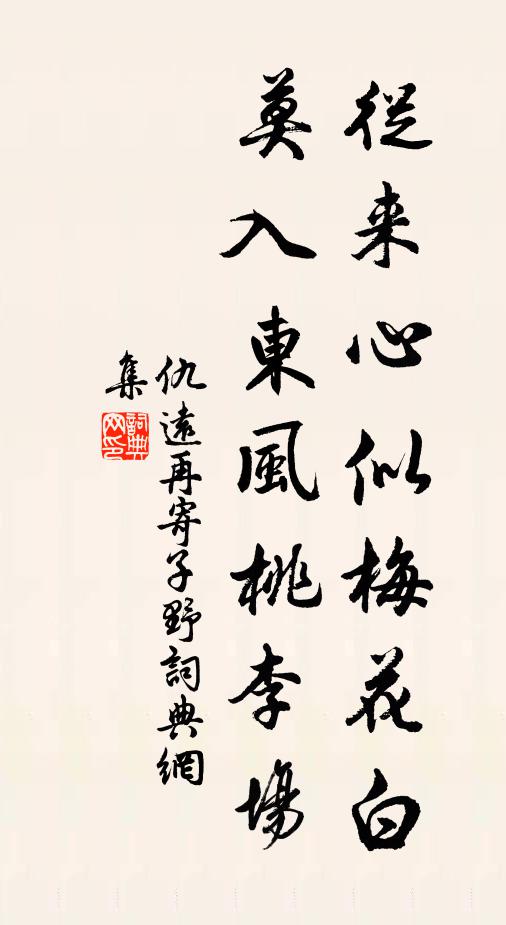 從来心似梅花白
莫入東風桃李場
仇遠再寄子野詞典網
集
詞典網印